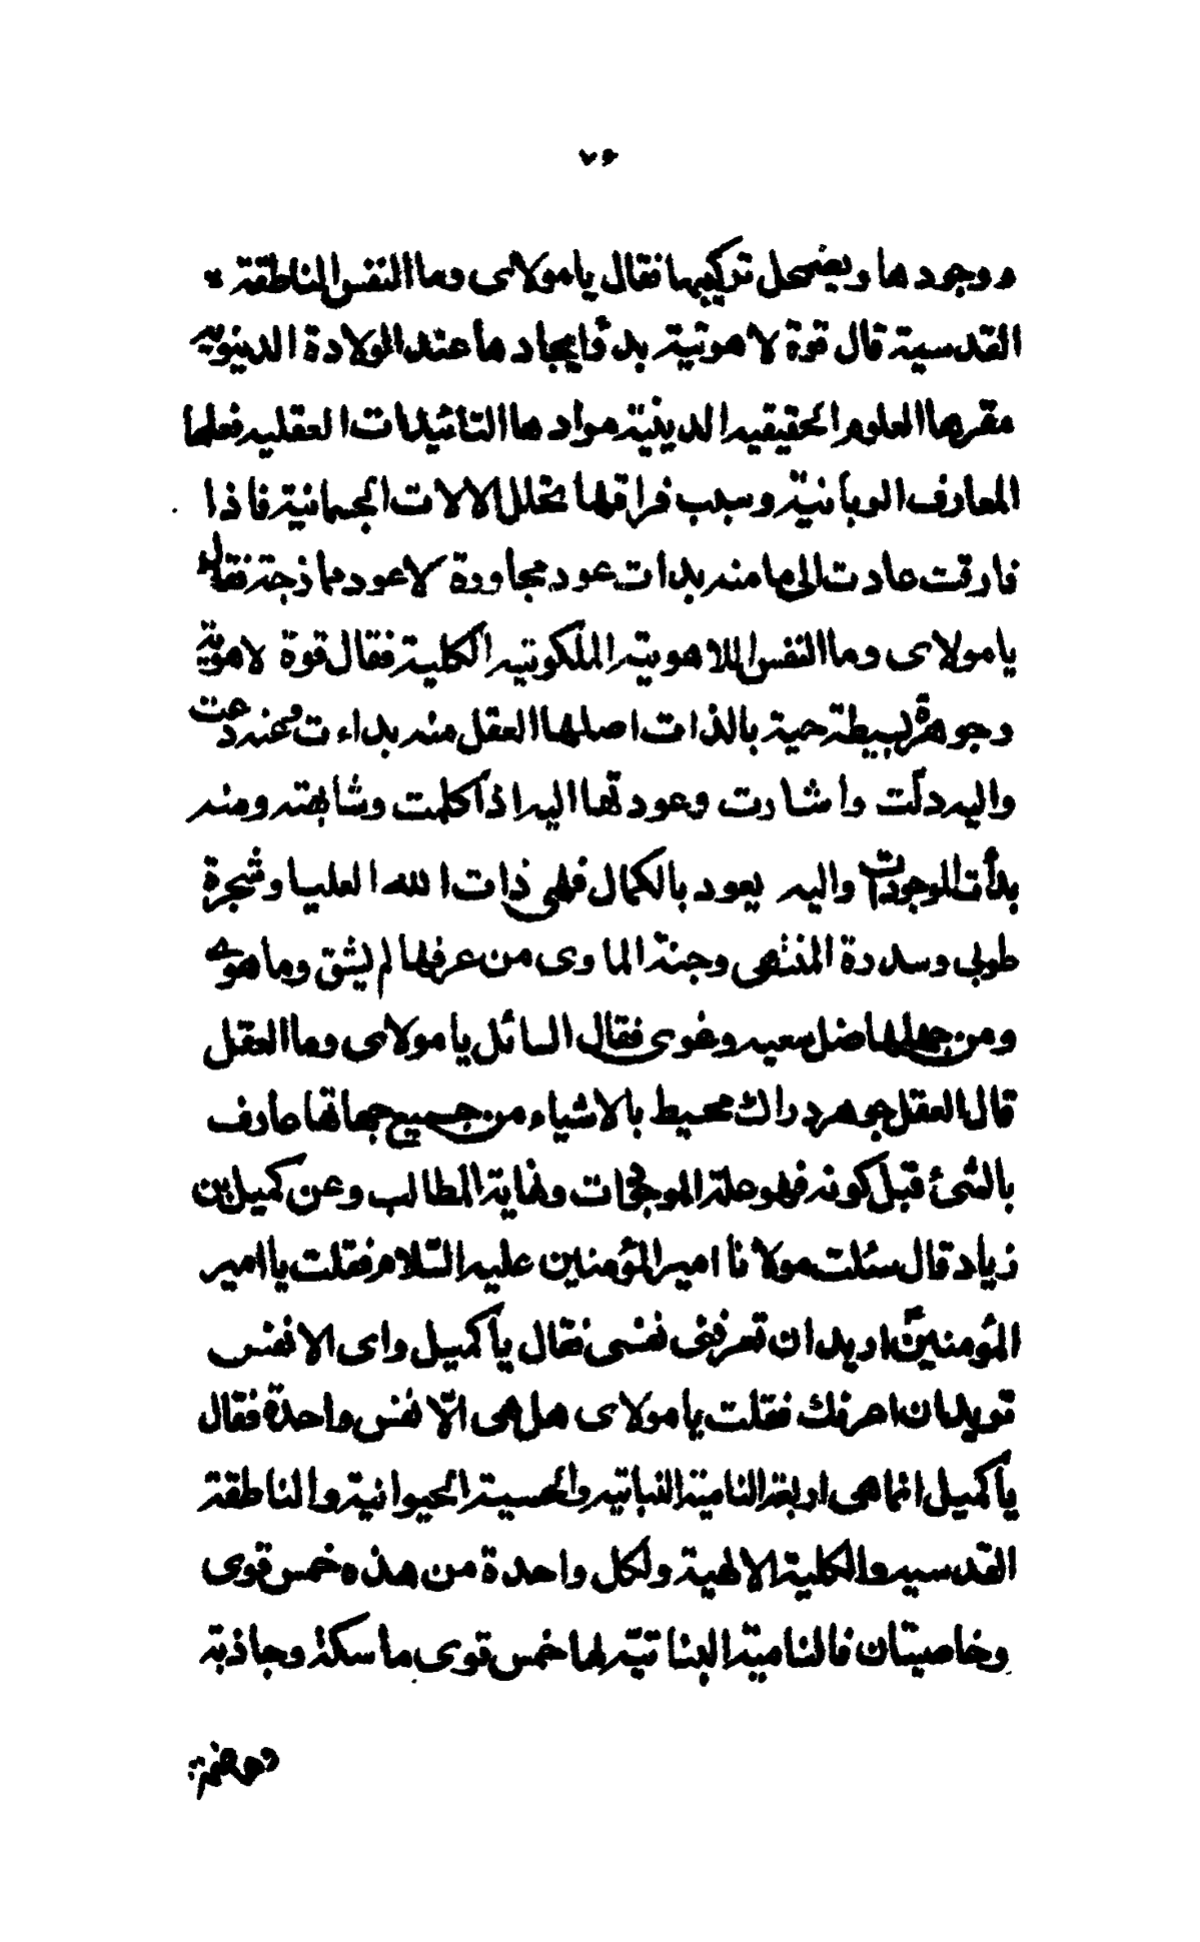 ٧٦
ووجودها ويضمحل تركيبها فقال يا مولاى وما النفس الناطقة
القدسية قال قوة لاهوتية بدؤ ايجادها عند الولادة الدنيوية
مقرها العلوم الحقيقيه الدينية موادها التائيدات العقليه فعلها
المعارف الربانية وسبب فراقها تحلل الالات الجسمانية فاذا
فارقت عادت الى ما منه بدات عود مجاورة لاعود ممازجة فقال
يا مولاى وما النفس اللاهوتيه الملكوتيه الكلية فقال قوة لاهوتية
وجوهرة بسيطة حية بالذات اصلها العقل منه بداءت وعنه دعت
واليه دلّت واشارت وعودتها اليه اذا كلمت وشابهته ومنه
بدأت الموجودات واليه يعود بالكمال فهى ذات الله العليا وشجرة
طوبى وسدرة المنتهى وجنة الماوى من عرفها لم يشق وما هوى
ومن جهلها ضل سعيه وغوى فقال السائل يا مولاى وما العقل
قال العقل جوهر دراك محيط بالاشياء من جميع جهاتها عارف
بالشئ قبل كونه فهو علة الموجودات ونهاية المطالب وعن كميل بن
زياد قال سئلت مولانا امير المؤمنين عليه السّلام فقلت يا امير
المؤمنين اريد ان تعرفنى نفسى فقال يا كميل واى الانفس
تريد ان اعرفك فقلت يا مولاى هل هى الّا نفس واحدة فقال
يا كميل انما هى اربعة النامية النباتيه والحسية الحيوانية والناطقة
القدسيه والكلية الالهية ولكل واحدة من هذه خمس قوى
وخاصيتان فالنامية النباتيّه لها خمس قوى ماسكة وجاذبة
وهاضمة